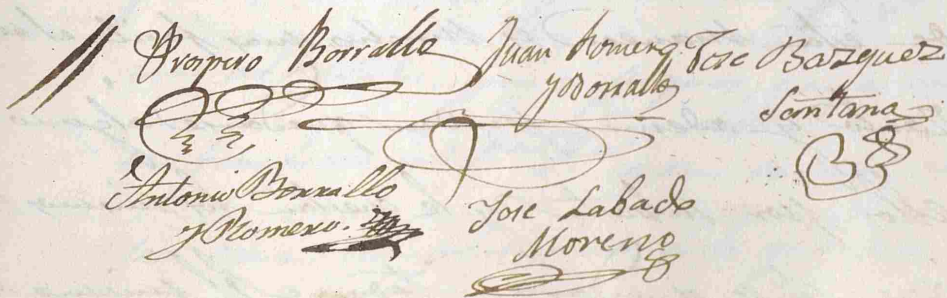 Prospero Borrallo
Juan Romero
y Borrallo
Jose Bazquez
Santana
Antonio Borrallo
y Romero.
Jose Labado
Moreno